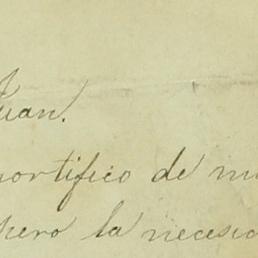 Juan.
mortifico de mi
pero la necesid